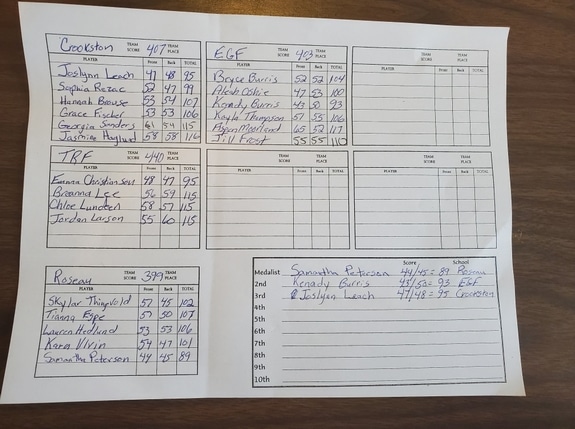 Crookston TEAM SCORE 407 TEAM PLACE
PLAYER Front Back TOTAL
Joslynn Leach 47 48 95
Sophia Rezac 52 47 99
Hannah Brouse 53 54 107
Grace Fischer 53 53 106
Georgia Sanders 61 54 115
Jasmine Hoglund 58 58 116
EGF TEAM SCORE 403 TEAM PLACE
PLAYER Front Back TOTAL
Bryce Burris 52 52 104
47 53 100
Kenady Burris 43 50 93
Kayla Thompson 51 55 106
65 52 117
Jill Frost 55 55 110
TEAM SCORE TEAM PLACE
PLAYER Front Back TOTAL
TRF TEAM SCORE 440 TEAM PLACE
PLAYER Front Back TOTAL
Emma Christianson 48 47 95
Breanna Lee 56 59 115
Chloe Lundeen 58 57 115
Jordan Larson 55 60 115
TEAM SCORE TEAM PLACE
PLAYER Front Back TOTAL
TEAM SCORE TEAM PLACE
PLAYER Front Back TOTAL
Roseau TEAM SCORE 399 TEAM PLACE
PLAYER Front Back TOTAL
Skylar Thingvold 57 45 102
Tianna Espe 57 50 107
Lauren Hedlund 53 53 106
Karen Ulvin 54 47 101
Samantha Peterson 44 45 89
Score School
Medalist Samantha Peterson 44/45 = 89 Roseau
2nd Kenady Burris 43/50 = 93 EGF
3rd Joslynn Leach 47/48 = 95 Crookston
4th
5th
6th
7th
8th
9th
10th